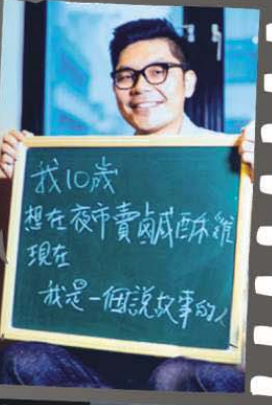 我10歲
想在夜市賣鹹酥雞
現在
我是一個說故事的人